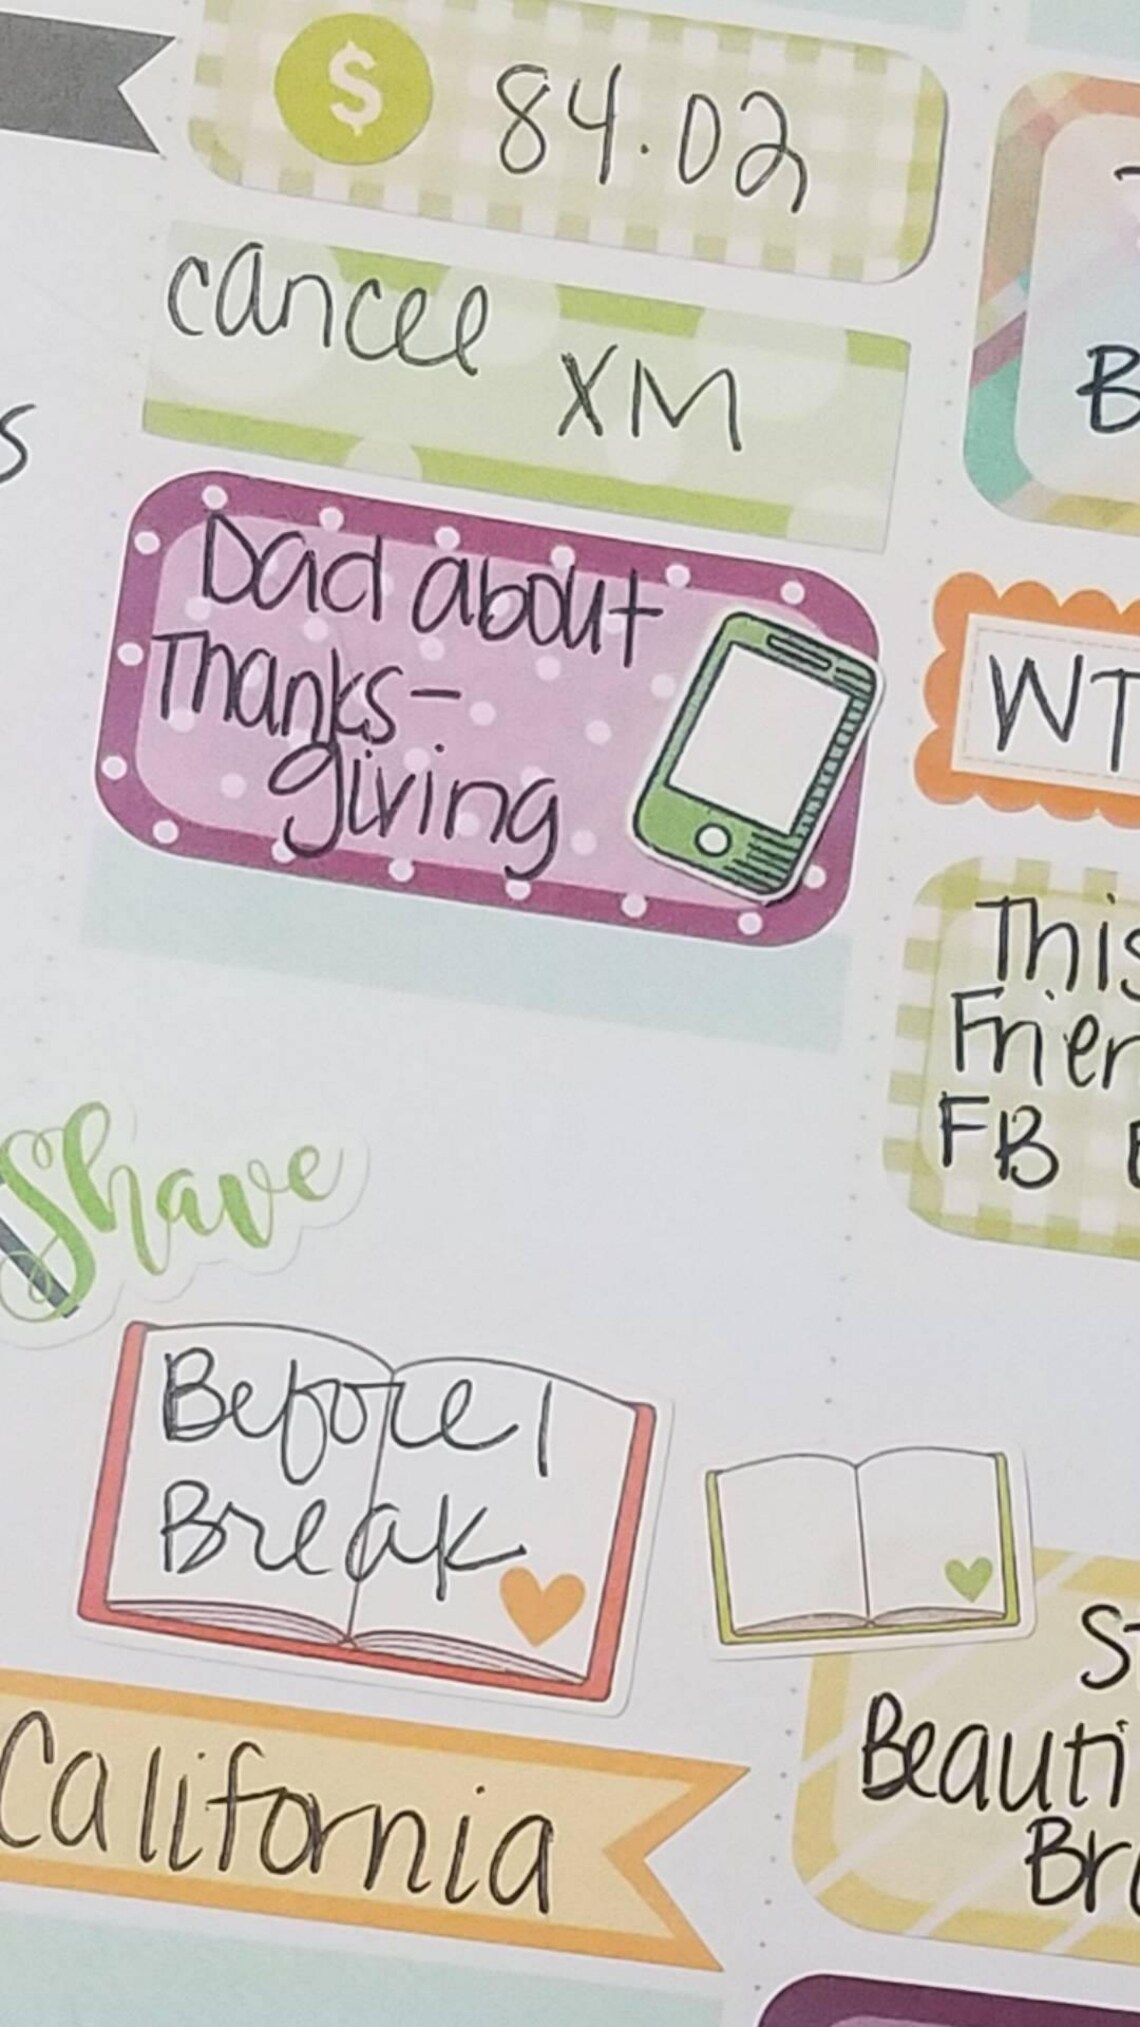 $ 84.02
cancel
XM
Dad about
Thanks-
giving
Shave
Before I
Break
California
B
WT
This
FB